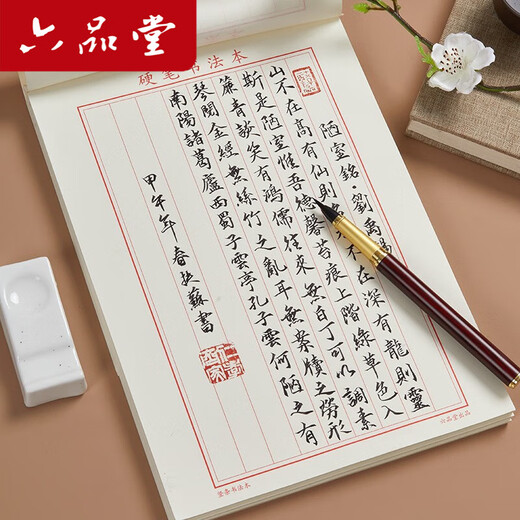 六品堂
硬笔书法本
陋室銘·劉禹錫
山不在高有仙則不在深有龍則靈
斯是陋室惟吾德馨苔痕上階綠草色入
簾青談笑有鴻儒往來無白丁可以調素
琴閱金經無絲竹之亂耳無案牘之勞形
南陽諸葛廬西蜀子雲亭孔子雲何陋之有
甲午年春蘇書
竖条书法本
六品堂出品